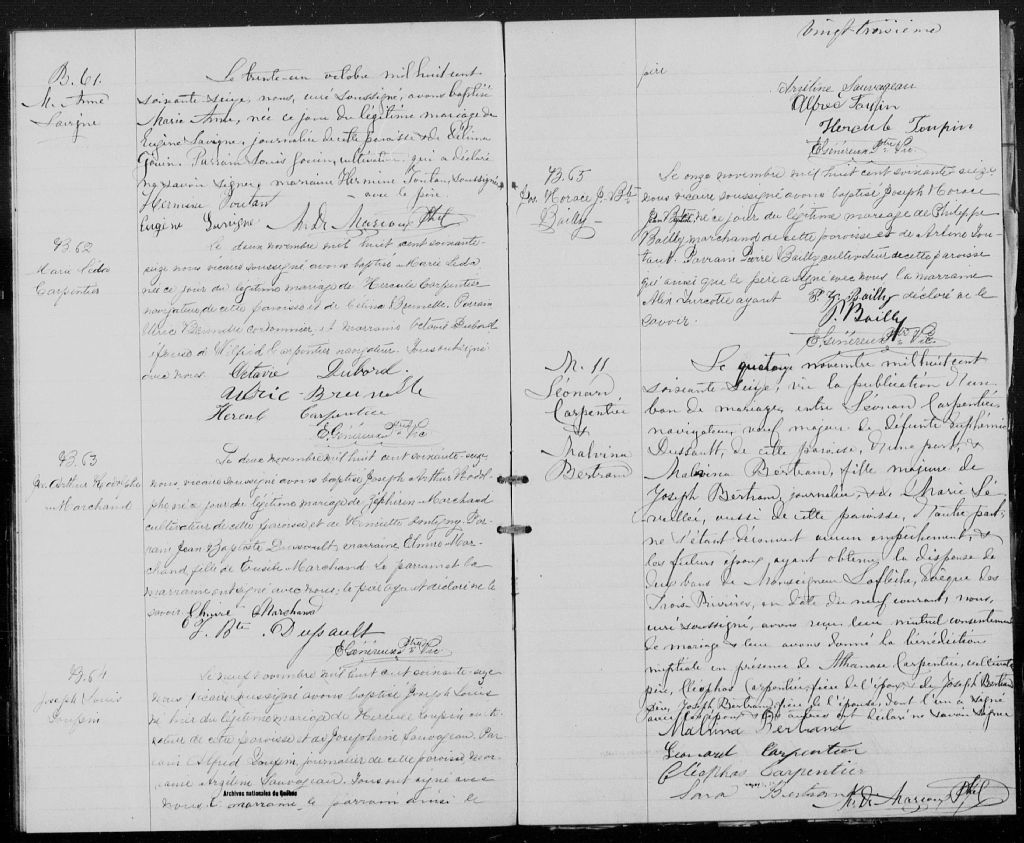 B. 61.
M. Anne
Lavigne
Le trente-un octobre mil huit cent
soixante-seize, nous, curé soussigné, avons baptisé
Marie Anne, née ce jour du légitime mariage de
Eugène Lavigne, journalier de cette paroisse & de Célina
Gouin. Parrain Louis Gouin, cultivateur, qui a déclaré
ne savoir signer, marraine Hermine Toutan, soussignée
avec le père.
Hermine Toutan
Eugène Lavigne
B 62
Marie Léda
Carpentier
Le deux novembre mil huit cent soixante-
seize nous vicaire soussigné avons baptisé Marie Leda
née ce jour du légitime mariage de Hercule Carpentier
navigateur de cette paroisse et de Célina Brunelle. Parrain
Ulric Brunelle cordonnier et marraine Octavie Dubord
épouse de Wilfrid Carpentier navigateur. Tous ont signé
avec nous.
Octavie Dubord.
Ulric Brunelle
Hercul Carpentier
E Généreux Ptre Vic
B. 63
Jos. Arthur Rodolphe
Marchand
Le deux novembre mil huit cent soixante-seize
nous, vicaire soussigné avons baptisé Joseph Arthur Rodol
phe né ce jour du légitime mariage de Zéphirin Marchand
cultivateur de cette paroisse et de Henriette Lontigny. Par-
rain Jean Baptiste Dussault, marraine Elmire Mar-
chand fille de Marchand. Le parrain et la
marraine ont signé avec nous; le père ayant déclaré ne le
savoir.
Elmire Marchand
J. Bte. Dussault
E Généreux Ptre Vic
B. 64
Joseph Louis
Toupin
Le neuf novembre mil huit cent soixante-seize
nous vicaire soussigné avons baptisé Joseph Louis
né hier du légitime mariage de Hercule Toupin culti-
vateur de cette paroisse et de Josephine Sauvageau. Par-
rain Alfred Toupin, journalier de cette paroisse, mar-
raine Arzéline Sauvageau. Tous ont signé avec
nous, marraine, le parrain ainsi le
Archives nationales du Québec
Vingt-troisième
père
Arzéline Sauvageau
Alfred Toupin
Hercule Toupin
E Généreux Ptre Vic.
B. 65
Jos. Horace J. Bte
Bailly
Le onze novembre mil huit cent soixante seize
nous vicaire soussigné avons baptisé Joseph Horace
Jean Baptiste né ce jour du légitime mariage de Philippe
Bailly marchand de cette paroisse et de Arline Tou-
tant. Parrain Pierre Bailly cultivateur de cette paroisse
qui ainsi que le père a signé avec nous la marraine
Alix Turcotte ayant déclaré ne le
savoir.
P. G. Bailly
P. Bailly
E Généreux Ptre Vic.
M. 11
Léonard
Carpentier
&
Malvina
Bertrand
Le quatorze novembre mil huit cent
soixante seize, vu la publication d'un
ban de mariage, entre Léonard Carpentier,
navigateur, veuf majeur de défunte Euphémie
Dussault, de cette paroisse, d'une part, &
Malvina Bertrand, fille majeure de
Joseph Bertrand, journalier, & de Marie Lé-
veillée, aussi de cette paroisse, d'autre part;
ne s'étant découvert aucun empêchement, &
les futurs époux, ayant obtenu la dispense de
deux bans de Monseigneur Laflèche, évêque des
Trois Rivières, en date du neuf courant, nous,
curé soussigné, avons reçu leur mutuel consentement
de mariage & leur avons donné la bénédiction
nuptiale en présence de Athanase Carpentier, cultivateur
père, Cléophas Carpentier, frère de l'époux & de Joseph Bertrand
père, Joseph Bertrand, frère de l'épouse, dont l'un a signé
avec les époux & les autres ont déclaré ne savoir signer
Malvina Bertrand
Leonard Carpentier
Cléophas Carpentier
Sara Bertrand